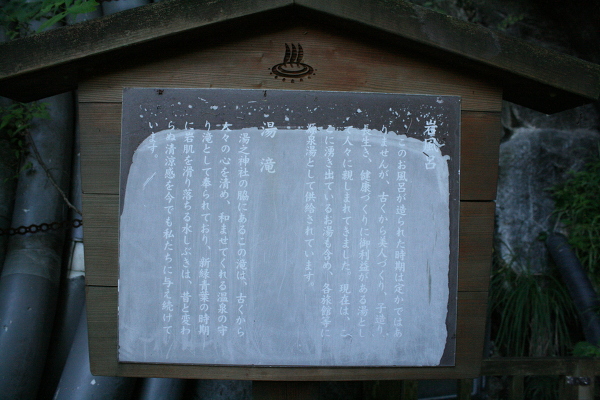 岩風呂
このお風呂が造られた時期は定かではあ
りませんが、古くから美人づくり、子造り、
長生き、健康づくりに御利益がある湯とし
て人々に親しまれてきました。現在は、
に湧き出ているお湯も含め、各旅館等に
源泉湯として供給されています。
湯滝
湯之神社の脇にあるこの滝は、古くから
人々の心を清め、和ませてくれる温泉の守
り滝として奉られており、新緑青葉の時期
に岩肌を滑り落ちる水しぶきは、昔と変わ
らぬ清涼感を今でも私たちに与え続けて
います。